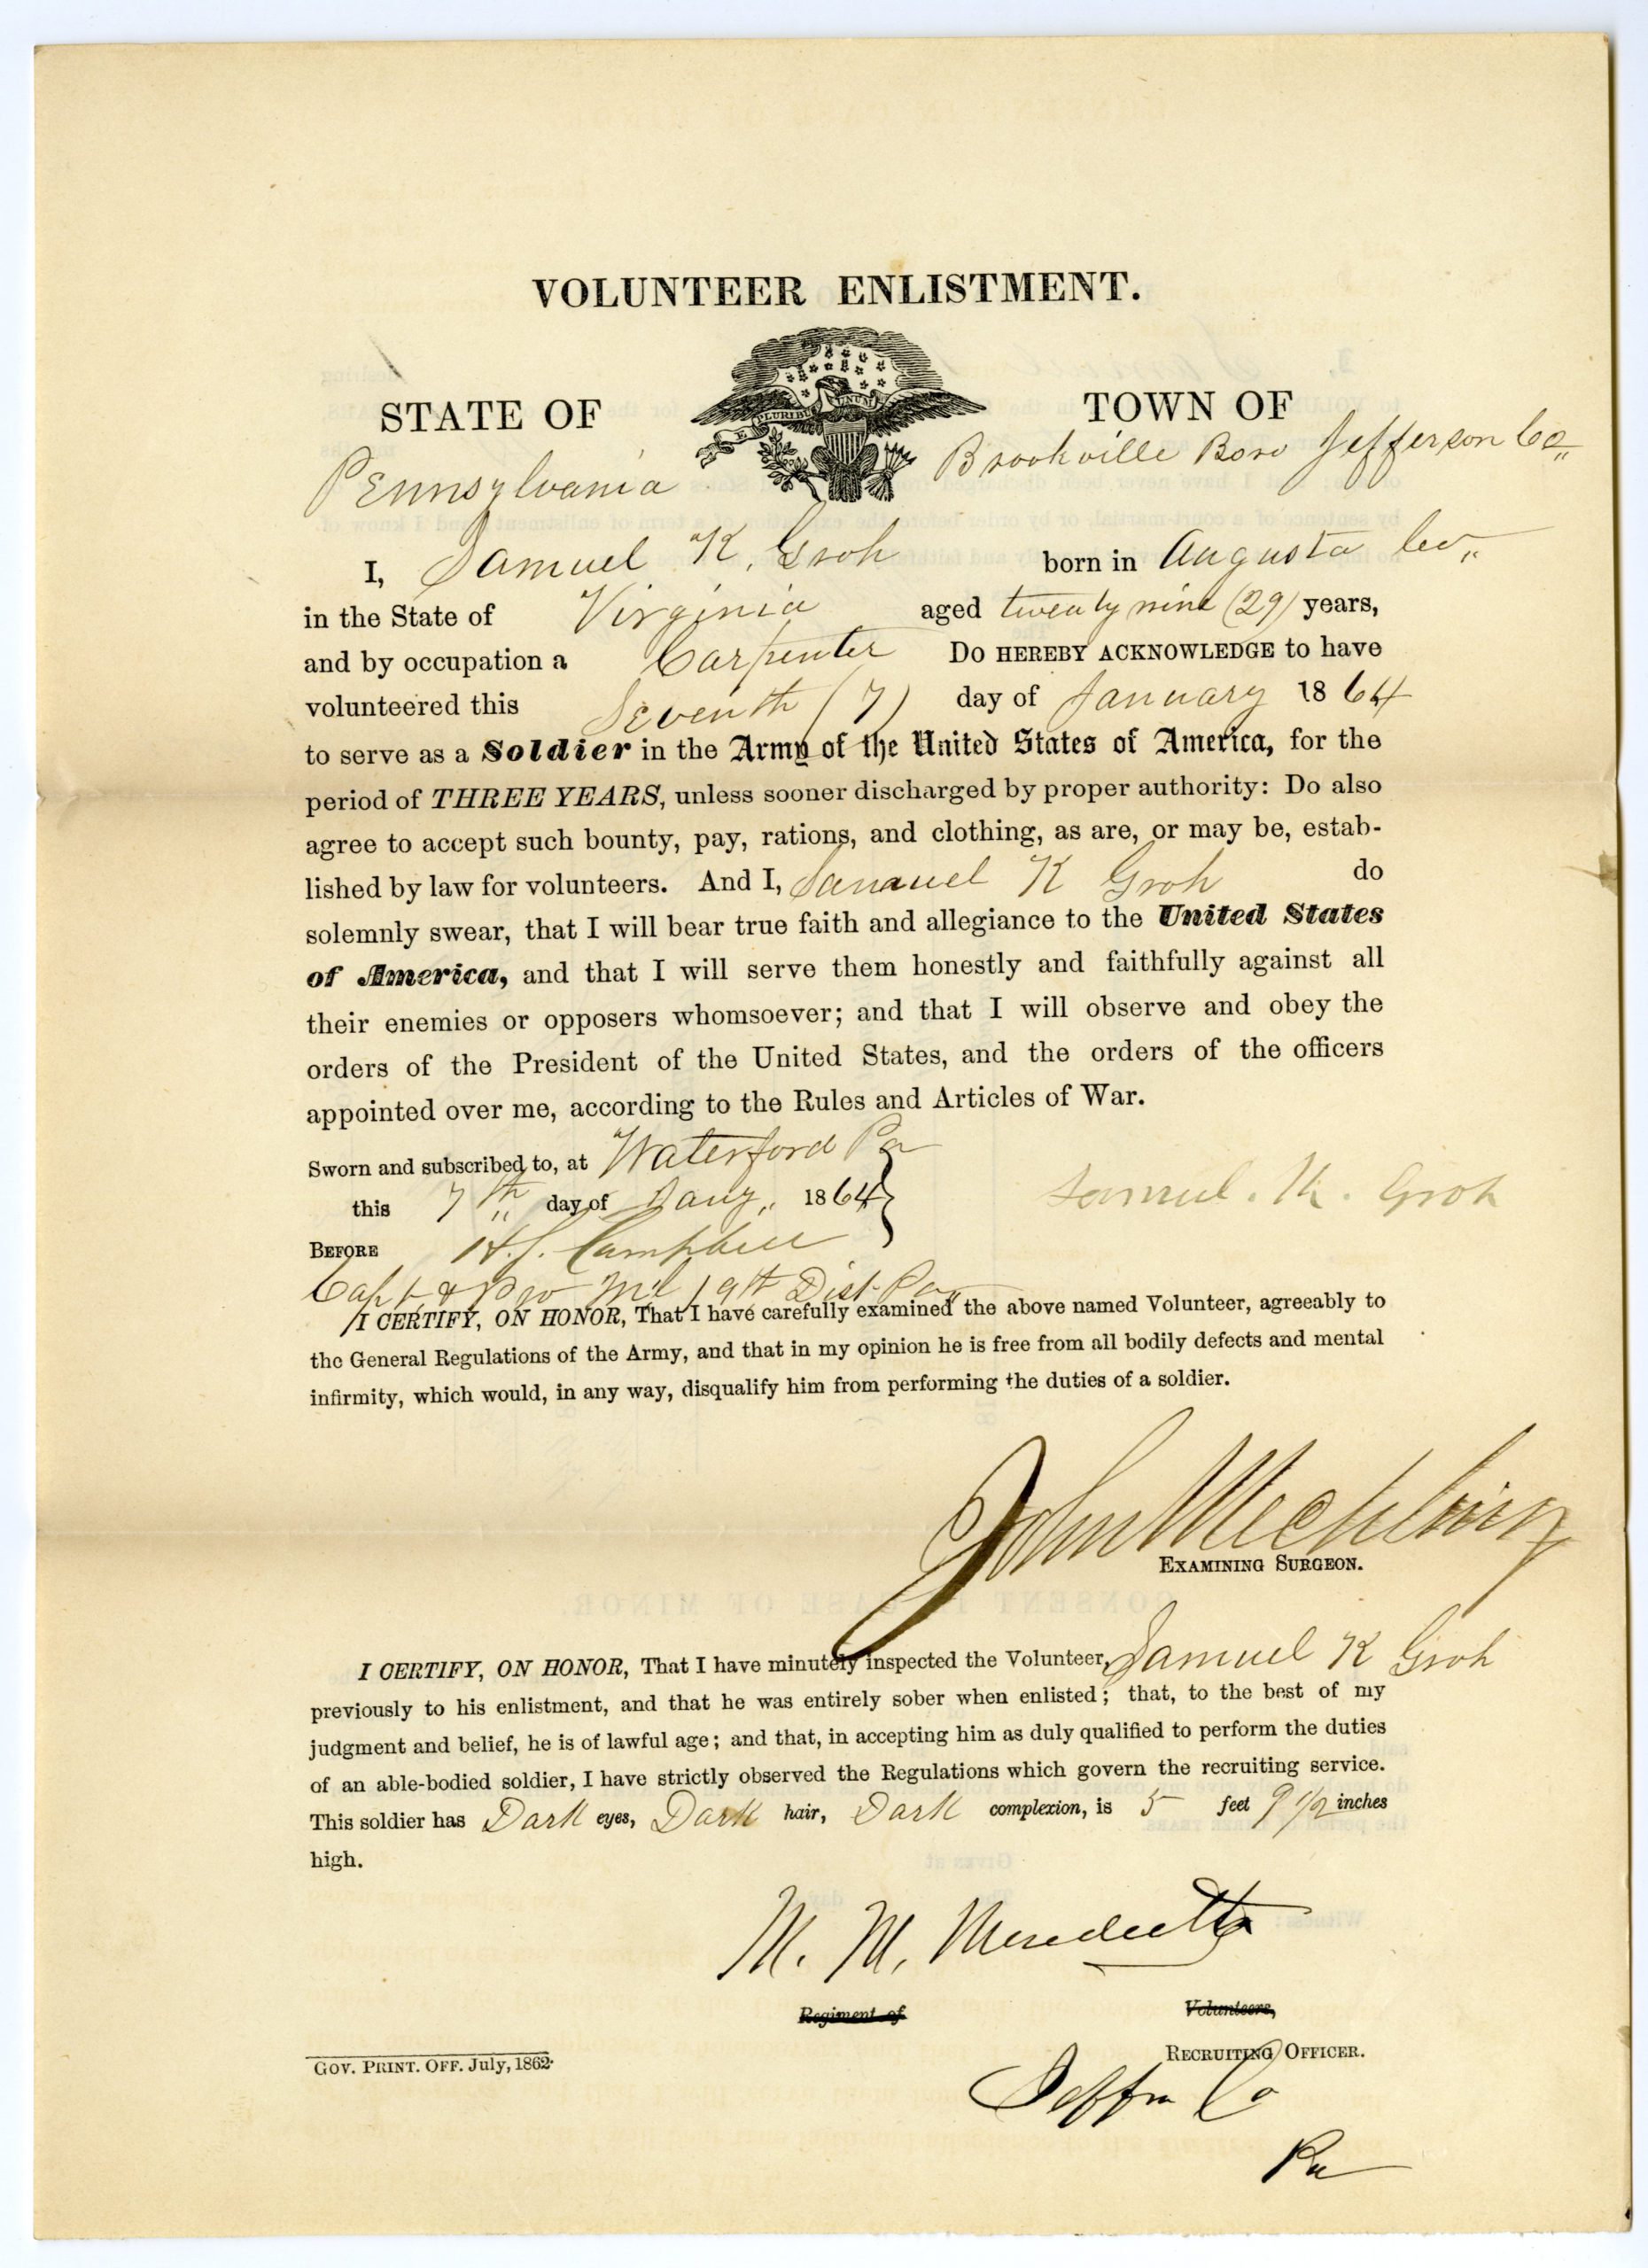 VOLUNTEER ENLISTMENT.
E PLURIBUS UNUM
STATE OF TOWN OF
Pennsylvania Brookville Boro Jefferson Co,,
I, Samuel K. Groh born in Augusta Co,,
in the State of Virginia aged twenty nine (29) years,
and by occupation a Carpenter DO HEREBY ACKNOWLEDGE to have
volunteered this Seventh (7) day of January 1864
to serve as a Soldier in the Army of the United States of America, for the
period of THREE YEARS, unless sooner discharged by proper authority: Do also
agree to accept such bounty, pay, rations, and clothing, as are, or may be, estab-
lished by law for volunteers. And I, Samuel K Groh do
solemnly swear, that I will bear true faith and allegiance to the United States
of America, and that I will serve them honestly and faithfully against all
their enemies or opposers whomsoever; and that I will observe and obey the
orders of the President of the United States, and the orders of the officers
appointed over me, according to the Rules and Articles of War.
Sworn and subscribed to, at Waterford Pa
this 7th day of Jany,, 1864 Samuel. K. Groh
BEFORE H.S. Campbell
Capt & Pro Ml 19th Dist. Pa,,
I CERTIFY, ON HONOR, That I have carefully examined the above named Volunteer, agreeably to
the General Regulations of the Army, and that in my opinion he is free from all bodily defects and mental
infirmity, which would, in any way, disqualify him from performing the duties of a soldier.
John Mechling
EXAMINING SURGEON.
I CERTIFY, ON HONOR, That I have minutely inspected the Volunteer, Samuel K Groh
previously to his enlistment, and that he was entirely sober when enlisted; that, to the best of my
judgment and belief, he is of lawful age; and that, in accepting him as duly qualified to perform the duties
of an able-bodied soldier, I have strictly observed the Regulations which govern the recruiting service.
This soldier has Dark eyes, Dark hair, Dark complexion, is 5 feet 9 1/2 inches
high.
M. M. Meredith
Regiment of Volunteers,
GOV. PRINT. OFF. July, 1862. RECRUITING OFFICER.
Jeffn Co
Pa